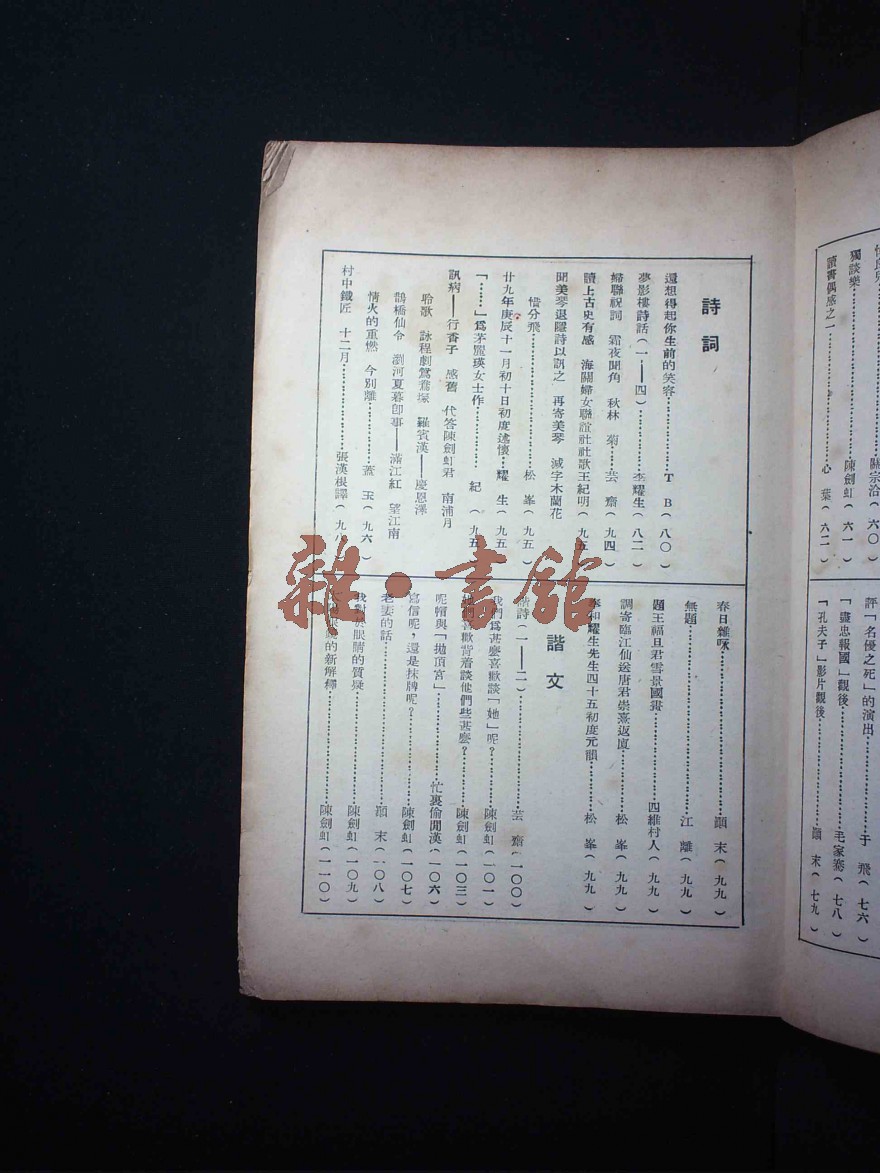 獨談樂……陳劍虹（六一）
讀書偶感之一……心葉（六二）
評「名優之死」的演出……于飛（七六）
「盡忠報國」觀後……毛家騫（七八）
「孔夫子」影片觀後……顓末（七九）
詩詞
還想得起你生前的笑容……ＴＢ（八〇）
夢影樓詩話（一——四）……李耀生（八二）
婦聯祝詞　霜夜聞角　秋林　菊……芸齋（九四）
讀上古史有感　海關婦女聯誼社社歌王紀明（九五）
聞美琴退隱詩以訊之　再寄美琴　減字木蘭花
惜分飛……松峯（九五）
廿九年庚辰十一月初十日初度述懷……耀生（九五
「……」為茅麗瑛女士作……紀（九五）
訊病——行香子　感舊　代答陳劍虹君　南浦月
聆歌　詠程劇鴛鴦塚　羅賓漢——慶恩澤
鵲橋仙令　瀏河夏暮即事——滿江紅　望江南
情火的重燃　今別離……蓋玉（九六）
村中鐵匠　十二月……張漢根譯（九
春日雜咏……顓末（九九）
無題……江離（九九）
題王福旦君雪景國畫……四維村人（九九）
調寄臨江仙送唐君崇熹返廈……松峯（九九）
奉和耀生先生四十五初度元韻……松峯（九九）
諧文
諧詩（一——二）……芸齋（一〇〇）
我們為甚麼喜歡談「她」呢？……陳劍虹（一〇一）
她們喜歡背着談他們些甚麼？……陳劍虹（一〇三）
呢帽與「拋頂宮」……忙裏偷閒漢（一〇六）
寫信呢，還是抹牌呢？……陳劍虹（一〇七）
老妻的話……顓末（一〇八）
我對於眼睛的質疑……陳劍虹（一〇九）
的新解釋……陳劍虹（一一〇）
雜·書館